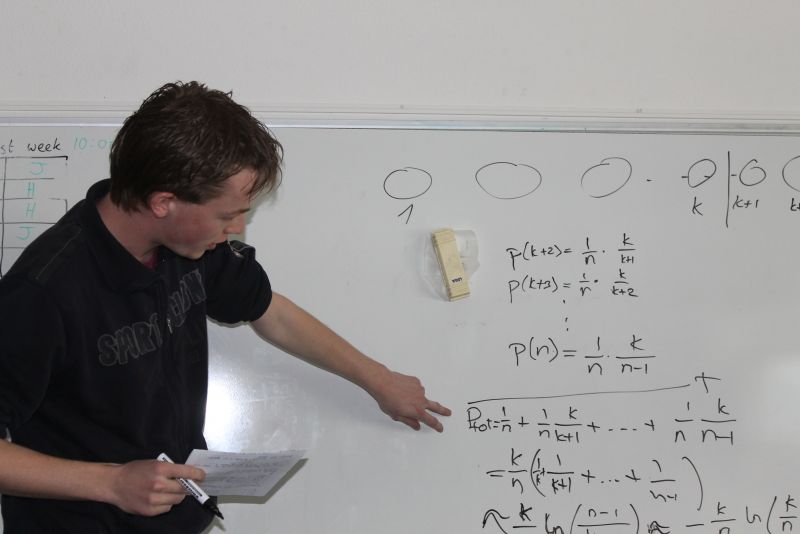 st week 10:0
J
H
H
J
1
k
k+1
k+
P(k+2) = 1/n · k/k+1
P(k+3) = 1/n · k/k+2
⋮
P(n) = 1/n · k/n-1
+
P tot = 1/n + 1/n k/k+1 + .... + 1/n k/n-1
= k/n ( 1/k + 1/k+1 + ... + 1/n-1 )
≈ k/n ln( n-1/k ) ≈ - k/n ln( k/n
SPORT